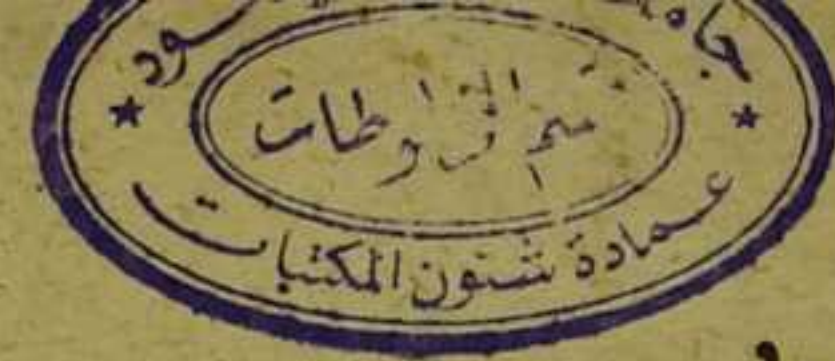 جامعة
سعود
قسم المخطوطات
عمادة شئون المكتبات